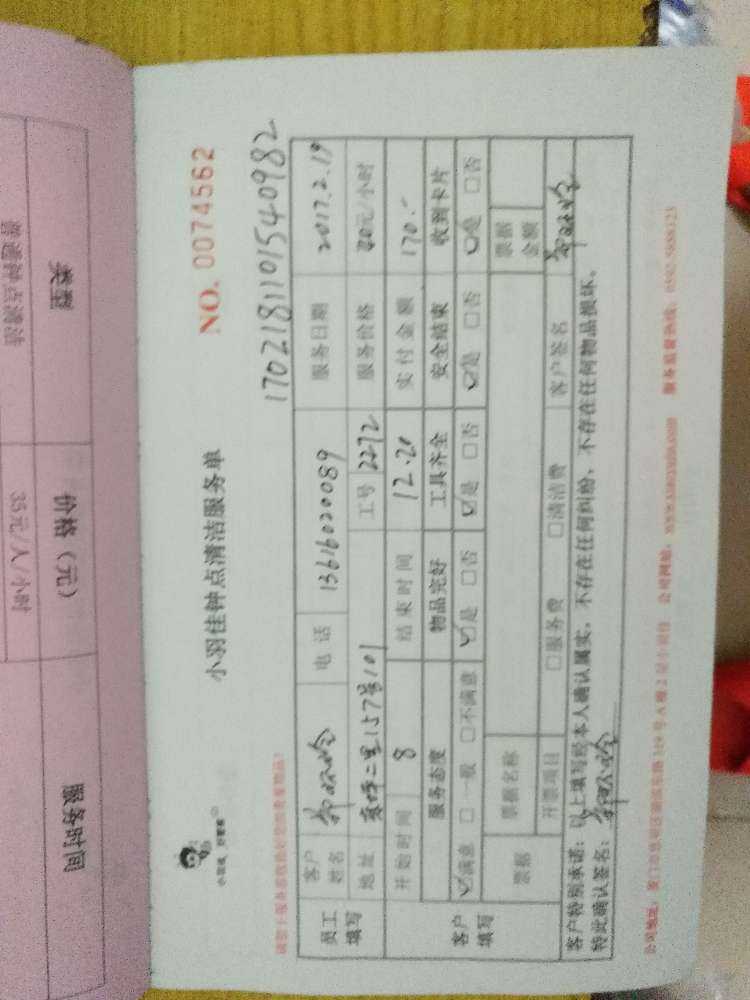 类型 价格（元） 服务时间
普通钟点清洁 35元/人/小时
小羽佳钟点清洁服务单 NO. 0074562
170218110154098 2
员工填写 客户姓名 电话 13616020089 服务日期 2017.2.19
地址 二里157号101 工号 2272 服务价格 元/小时
开始时间 8 结束时间 12.20 实付金额 170.-
客户填写 服务态度 物品完好 工具齐全 安全结束 收到卡片
☑满意 □一般 □不满意 ☑是 □否 ☑是 □否 ☑是 □否 ☑是 □否
票据 票据名称 票据金额
开票项目 □服务费 □清洁费 客户签名
客户特别承诺：以上填写经本人确认属实，不存在任何纠纷，不存在任何物品损坏。
特此确认签名：
公司地址： 公司网址： 服务监督热线：0592-5088123